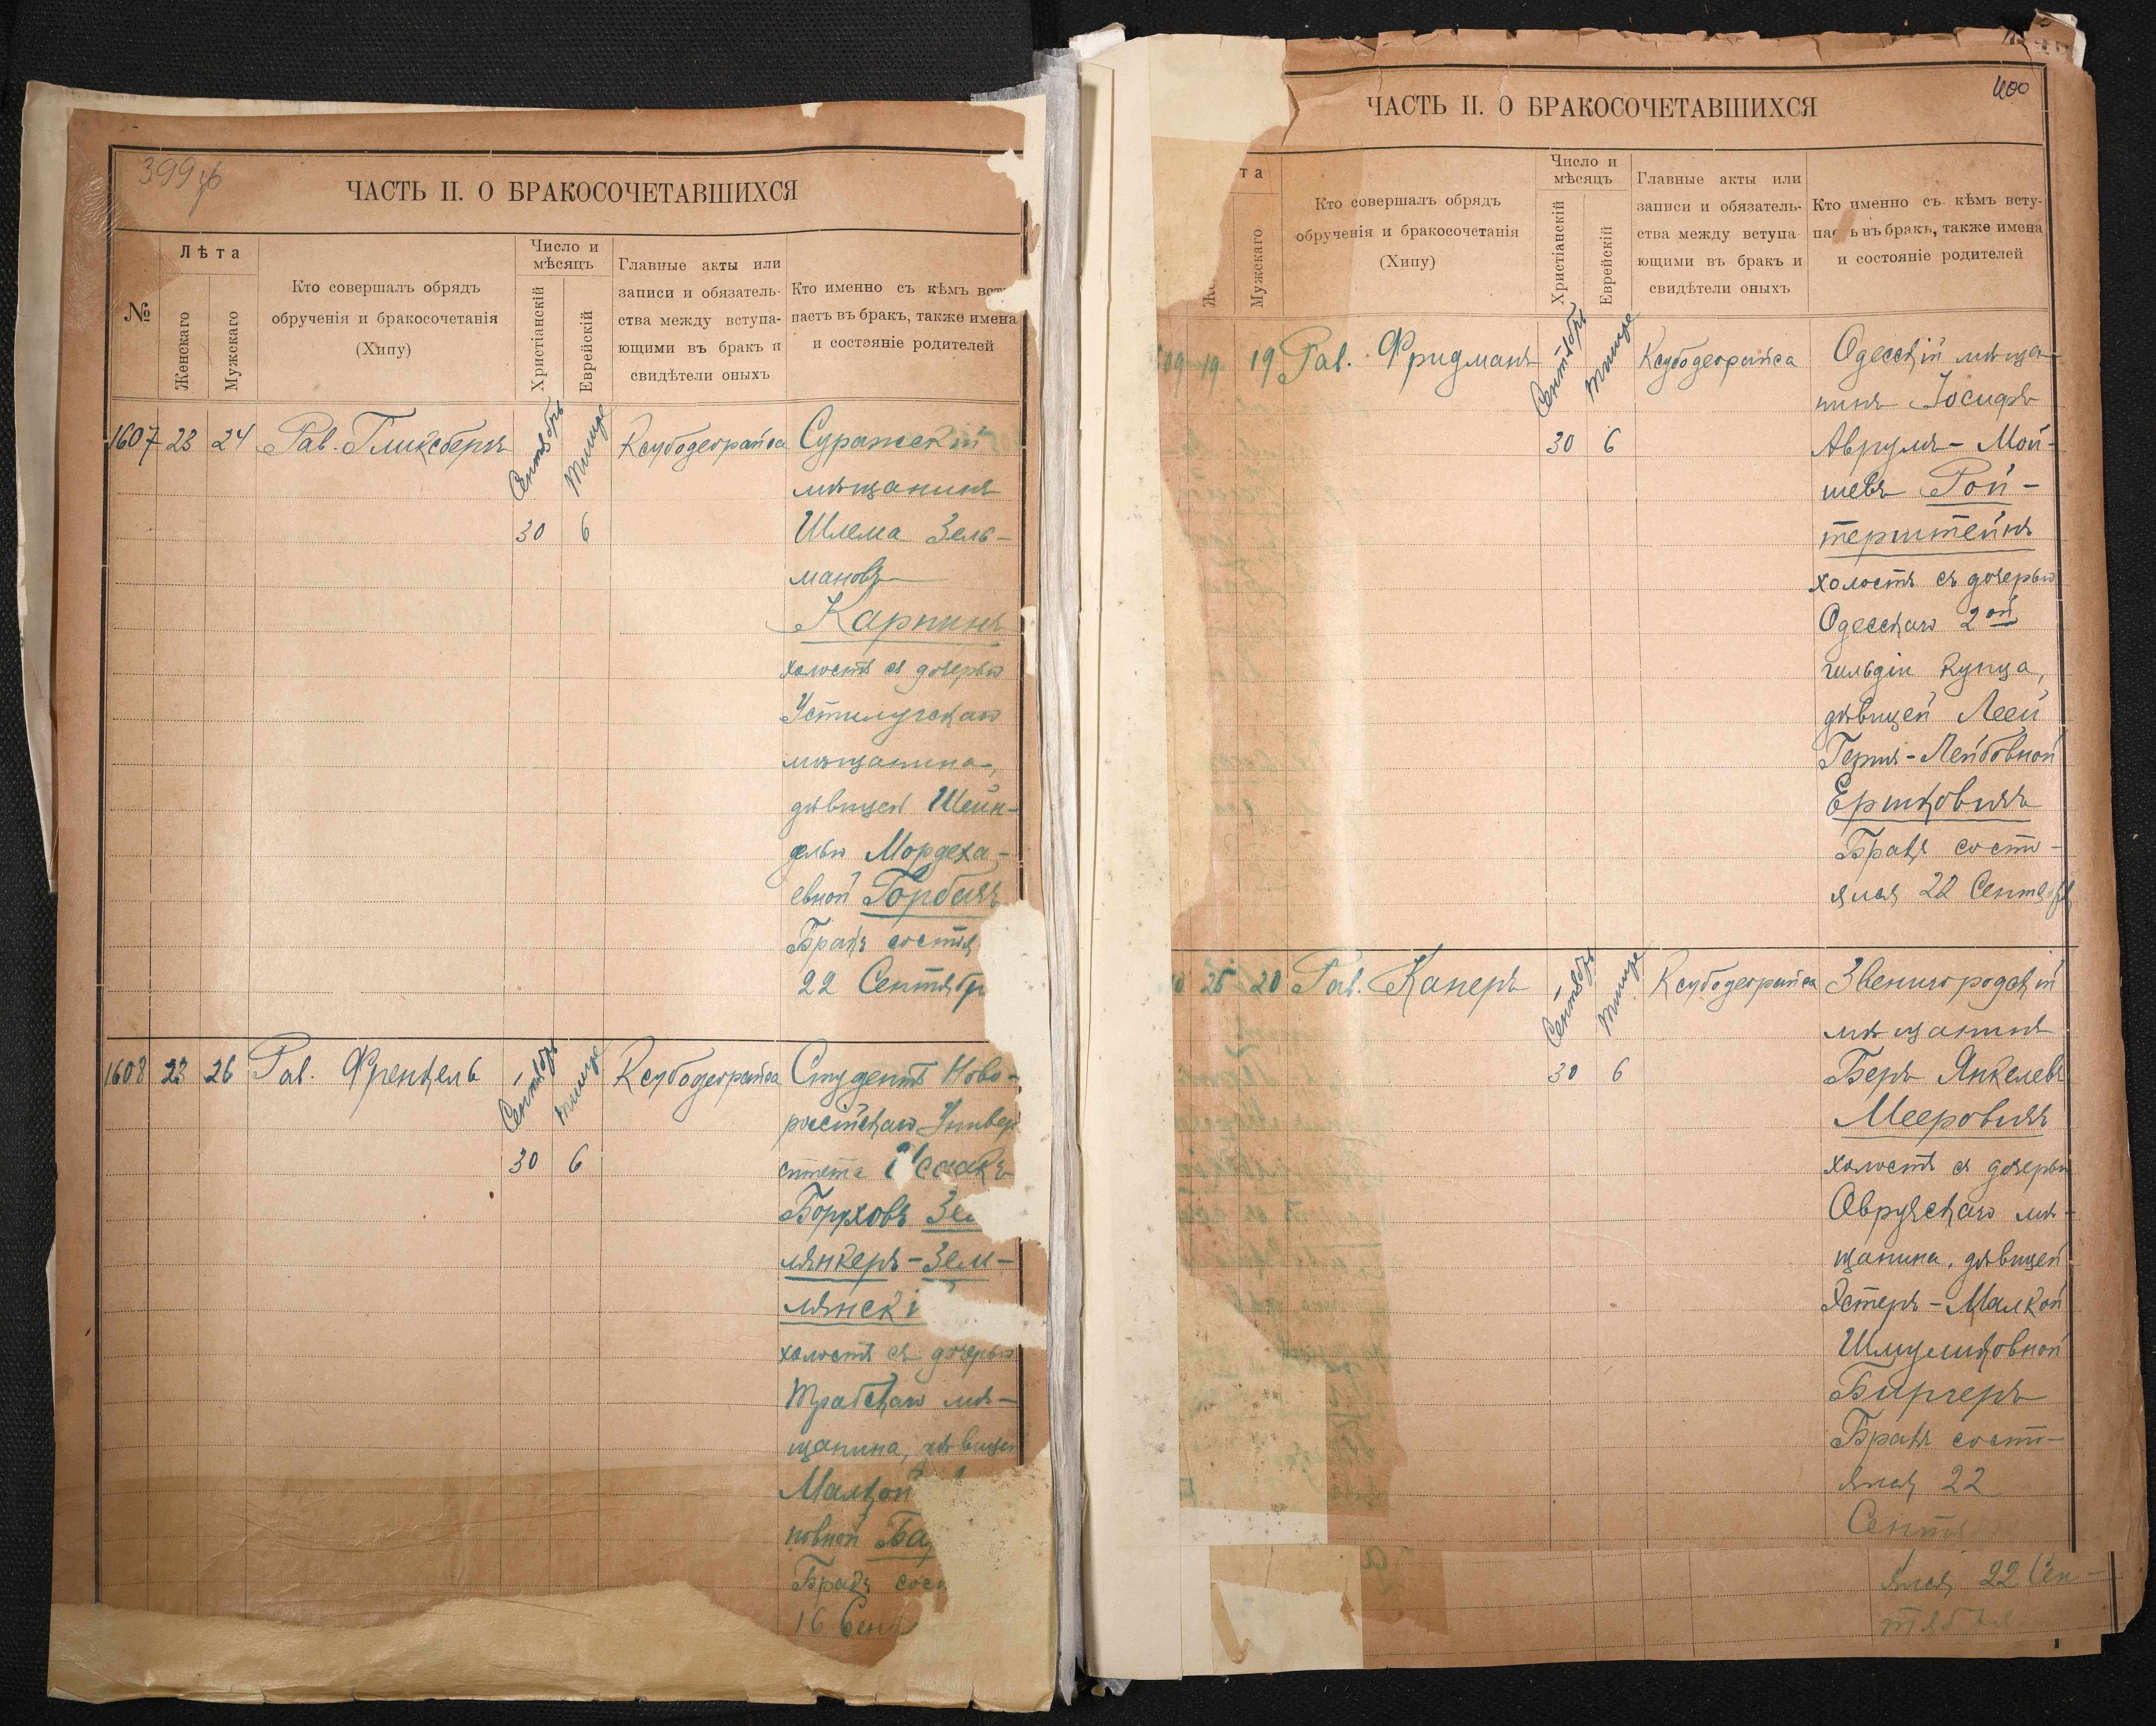 399 об
ЧАСТЬ II. О БРАКОСОЧЕТАВШИХСЯ
№
Лѣта
Женскаго
Мужскаго
Кто совершалъ обрядъ
обрученія и бракосочетанія
(Хипу)
Число и
мѣсяцъ
Христіанскій
Еврейскій
Главные акты или
записи и обязатель-
ства между вступа-
ющими въ бракъ и
свидѣтели оныхъ
Кто именно съ кѣмъ всту
паетъ въ бракъ, также имена
и состояніе родителей
1607 23 24 Рав. Гликсбергъ Сентябрь Тишре Ксубодеорайса Суражскій
мѣщанинъ
30 6 Шлема Зель-
мановъ
Карпинъ
холостъ съ дочерью
Устилугскаго
мѣщанина,
дѣвицей Шейн-
делью Мордеха-
евной Горбачъ
Бракъ состоя
22 Сентябр
1608 23 26 Рав. Френкель Сентябрь Тишре Ксубодеорайса Студентъ Ново-
россійскаго Универ
30 6 ситета Исаакъ
Боруховъ Зе
лянкеръ-Зем-
лянскі
холостъ съ дочерью
Трабскаго мѣ-
щанина, дѣвицей
Малкой
новной Ба
Бракъ сост
16 Сен
400
ЧАСТЬ II. О БРАКОСОЧЕТАВШИХСЯ
та
Же
Мужскаго
Кто совершалъ обрядъ
обрученія и бракосочетанія
(Хипу)
Число и
мѣсяцъ
Христіанскій
Еврейскій
Главные акты или
записи и обязатель-
ства между вступа
ющими въ бракъ и
свидѣтели оныхъ
Кто именно съ кѣмъ всту-
пае ъ въ бракъ, также имена
и состояніе родителей
609 19 19 Рав. Фридманъ Сентябрь Тишре Ксубодеорайса Одесскій мѣща-
нинъ Іосифъ
30 6 Аврумъ-Мой-
шевъ Рой-
терштейнъ
холостъ съ дочерью
Одесскаго 2ой
гильдіи купца,
дѣвицей Леей
Гершъ-Лейбовной
Ершковичъ
Бракъ состо-
ялся 22 Сентября
10 25 20 Рав. Канеръ Сентябрь Тишре Ксубодеорайса Звенигородскій
мѣщанинъ
30 6 Беръ Янкелевъ
Мееровичъ
холостъ съ дочерью
Овручскаго мѣ-
щанина, дѣвицей
Эстеръ-Малкой
Шмуликовной
Биргеръ
Бракъ состо-
ялся 22
Сентя
ялся 22 Сен-
тября